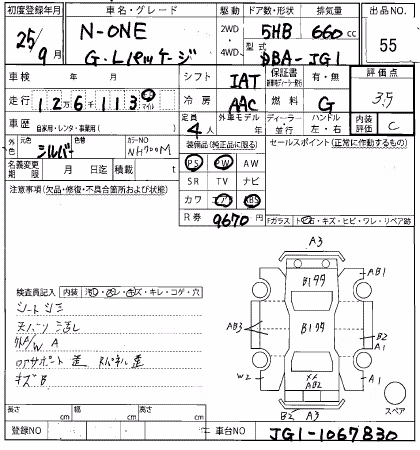 初度登録年月 車名・グレード 駆動 ドア数・形状 排気量 出品NO.
25/9月 N-ONE 2WD 5HB 660cc 55
G・Lパッケージ 4WD 型式 DBA-JG1
車検 年 月 シフト IAT 保証書 有・無 評価点
走行 126113 冷房 AAC 燃料 G 3.5
車歴 自家用・レンタ・事業用( ) 定員 4人 外車モデル ディーラー・並行 ハンドル 左・右 内装評価 C
外色 元色 シルバー 色替 カラーNO NH700M 装備品(純正品に限る) セールスポイント(正常に作動するもの)
名義変更期限 月 日迄 積載 t PS PW AW
SR TV ナビ
注意事項(欠品・修復・不具合箇所および状態) カワ エアB ABS
R券 9670
Fガラス トビ石・キズ・ヒビ・ワレ・リペア跡
検査員記入 内装 汚レ・スレ・キズ・キレ・コゲ・穴
シートシミ
天バリ汚レ
外P/W A
キズB
A3
B1タタ
AB1
AB3
B1タタ
B2
A1
W2
××
AB2
A1
B2
A3
スペア
長さ cm 幅 cm 高さ cm
登録NO 車台NO JG1-1067830